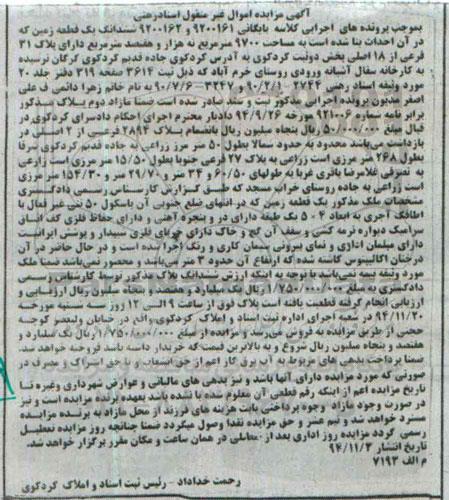 آگهی مزایده اموال غیر منقول اسنادرهنی
بموجب پرونده های اجرایی کلاسه بایگانی ۹۲۰۰۱۶۱ و ۹۲۰۰۱۶۲ ششدانگ یک قطعه زمین که
در آن احداث بنا شده است به مساحت ۹۷۰۰ مترمربع نه هزار و هفتصد مترمربع دارای پلاک ۳۱
فرعی از ۱۸ اصلی بخش دوثبت کردکوی به آدرس کردکوی جاده قدیم کردکوی گرگان نرسیده
به کارخانه سفال آشیانه ورودی روستای خرم آباد که ذیل ثبت ۳۶۱۴ صفحه ۳۱۹ دفتر جلد ۲۰
مورد وثیقه اسناد رهنی ۲۷۴۴ - ۹۰/۲/۱ و ۳۲۴۷ - ۹۰/۷/۶ به نام خانم زهرا دائمی ف علی
اصغر مدیون پرونده اجرایی مذکور ثبت و سند صادر شده است ضمنا مازاد دوم پلاک مذکور
برابر نامه شماره ۹۲۱۰۰۶ مورخه ۹۴/۹/۲۶ دادیار محترم اجرای احکام دادسرای کردکوی در
قبال مبلغ ۵۰/۰۰۰/۰۰۰ ریال پنجاه میلیون ریال بانضمام پلاک ۲۸۹۴ فرعی از ۲ اصلی در
بازداشت می‌باشد محدود به حدود شمالا بطول ۵۰ متر مرز زراعی به جاده قدیم کردکوی شرقا
بطول ۲۶۸ متر مرزی است زراعی به پلاک ۲۷ فرعی جنوبا بطول ۱۵/۵۰ متر مرزی است زارعی
به تصرفی غلامرضا باقری غربا به طولهای ۶۰/۵۰ و ۳۴ متر و ۲۹/۷۰ متر و ۱۵۴/۳۰ متر مرزی
است زراعی به جاده روستای خراب مسجد که طبق گزارش کارشناس رسمی دادگستری
مشخصات ملک مذکور یک قطعه زمین که در انتهای ضلع جنوبی آن باسکول ۵۰ تنی غیر فعال با
اطاقک آجری به ابعاد ۴ × ۵ یک طبقه دارای در و پنجره آهنی و دارای حفاظ فلزی کف اتاق
سرامیک دیواره نرمه کشی و سقف آن گچ و خاک دارای خرپای فلزی شیبدار و پوشش ایرانیت
دارای مبلمان اداری و نمای بیرونی سیمان کاری و رنگ اجرا شده است و در حال حاضر در آن
درختان اکالیپتوس کاشته شده که ارتفاع آن حدود ۳ متر می‌باشد و محصور نمی‌باشد ضمنا ملک
مورد وثیقه بیمه نمی‌باشد با توجه به اینکه ارزش ششدانگ پلاک مذکور توسط کارشناس رسمی
دادگستری به مبلغ ۱/۷۵۰/۰۰۰/۰۰۰ ریال یک میلیارد و هفتصد و پنجاه میلیون ریال ارزیابی و
ارزیابی انجام گرفته قطعیت یافته است پلاک فوق از ساعت ۹ الی ۱۲ روز سه شنبه مورخه
۹۴/۱۱/۲۰ در شعبه اجرای اداره ثبت اسناد و املاک کردکوی واقع در خیابان ولیعصر کوچه
حجتی از طریق مزایده به فروش می‌رسد و مزایده از مبلغ ۱/۷۵۰/۰۰۰/۰۰۰ ریال یک میلیارد و
هفتصد و پنجاه میلیون ریال شروع و به بالاترین قیمت که خریدار داشته باشد فروخته خواهد شد.
ضمنا پرداخت بدهی های مربوط به آب برق گاز اعم از حق انشعاب و یا حق اشتراک و مصرف در
صورتی که مورد مزایده دارای آنها باشد و نیز بدهی های مالیاتی و عوارض شهرداری وغیره تا
تاریخ مزایده اعم از اینکه رقم قطعی آن معلوم شده یا نشده باشد بعهده برنده مزایده است و نیز
در صورت وجود مازاد وجوه پرداختی بابت هزینه های فرزند از محل مازاد به برنده مزایده
مسترد خواهد شد و نیم عشر و حق مزایده نقدا وصول میگردد ضمنا چنانچه روز مزایده تعطیل
رسمی گردد مزایده روز اداری بعد از تعطیلی در همان ساعت و مکان مقرر برگزار خواهد شد.
تاریخ انتشار ۹۴/۱۱/۳
م الف ۷۱۹۳
رحمت خداداد - رئیس ثبت اسناد و املاک کردکوی